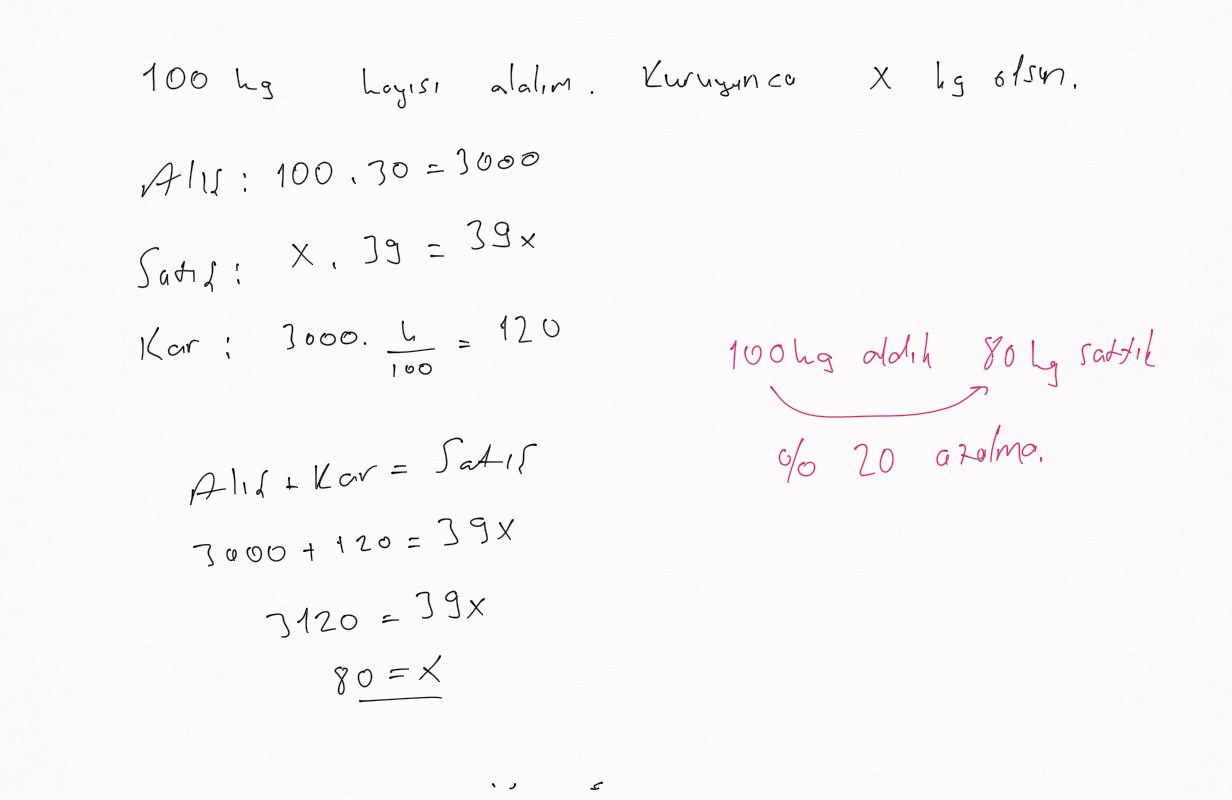 100 kg kayısı alalım. Kuruyunca x kg olsun.
Alış: 100 . 30 = 3000
Satış: x . 39 = 39x
Kar: 3000. 4/100 = 120
100 kg aldık 80 kg sattık
% 20 azalma.
Alış + Kar = Satış
3000 + 120 = 39x
3120 = 39x
80 = x